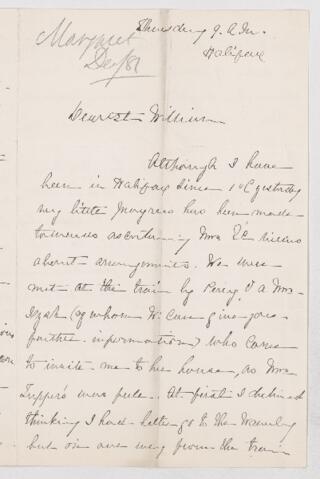 Margaret
Dec/81
Thursday 9. A.M.
Halifax
Dearest William
Although I have
been in Halifax since 1 o'c yesterday
my little progress has been made
towards ascertaining Mrs
about arrangements. We were
met at the train by Percy V a Mr
(of whom W. can give you
further information) who came
to invite me to his house, as Mrs
Tupper's was full. At first I declined
thinking I had better go to the Waverley
but on our way from the train